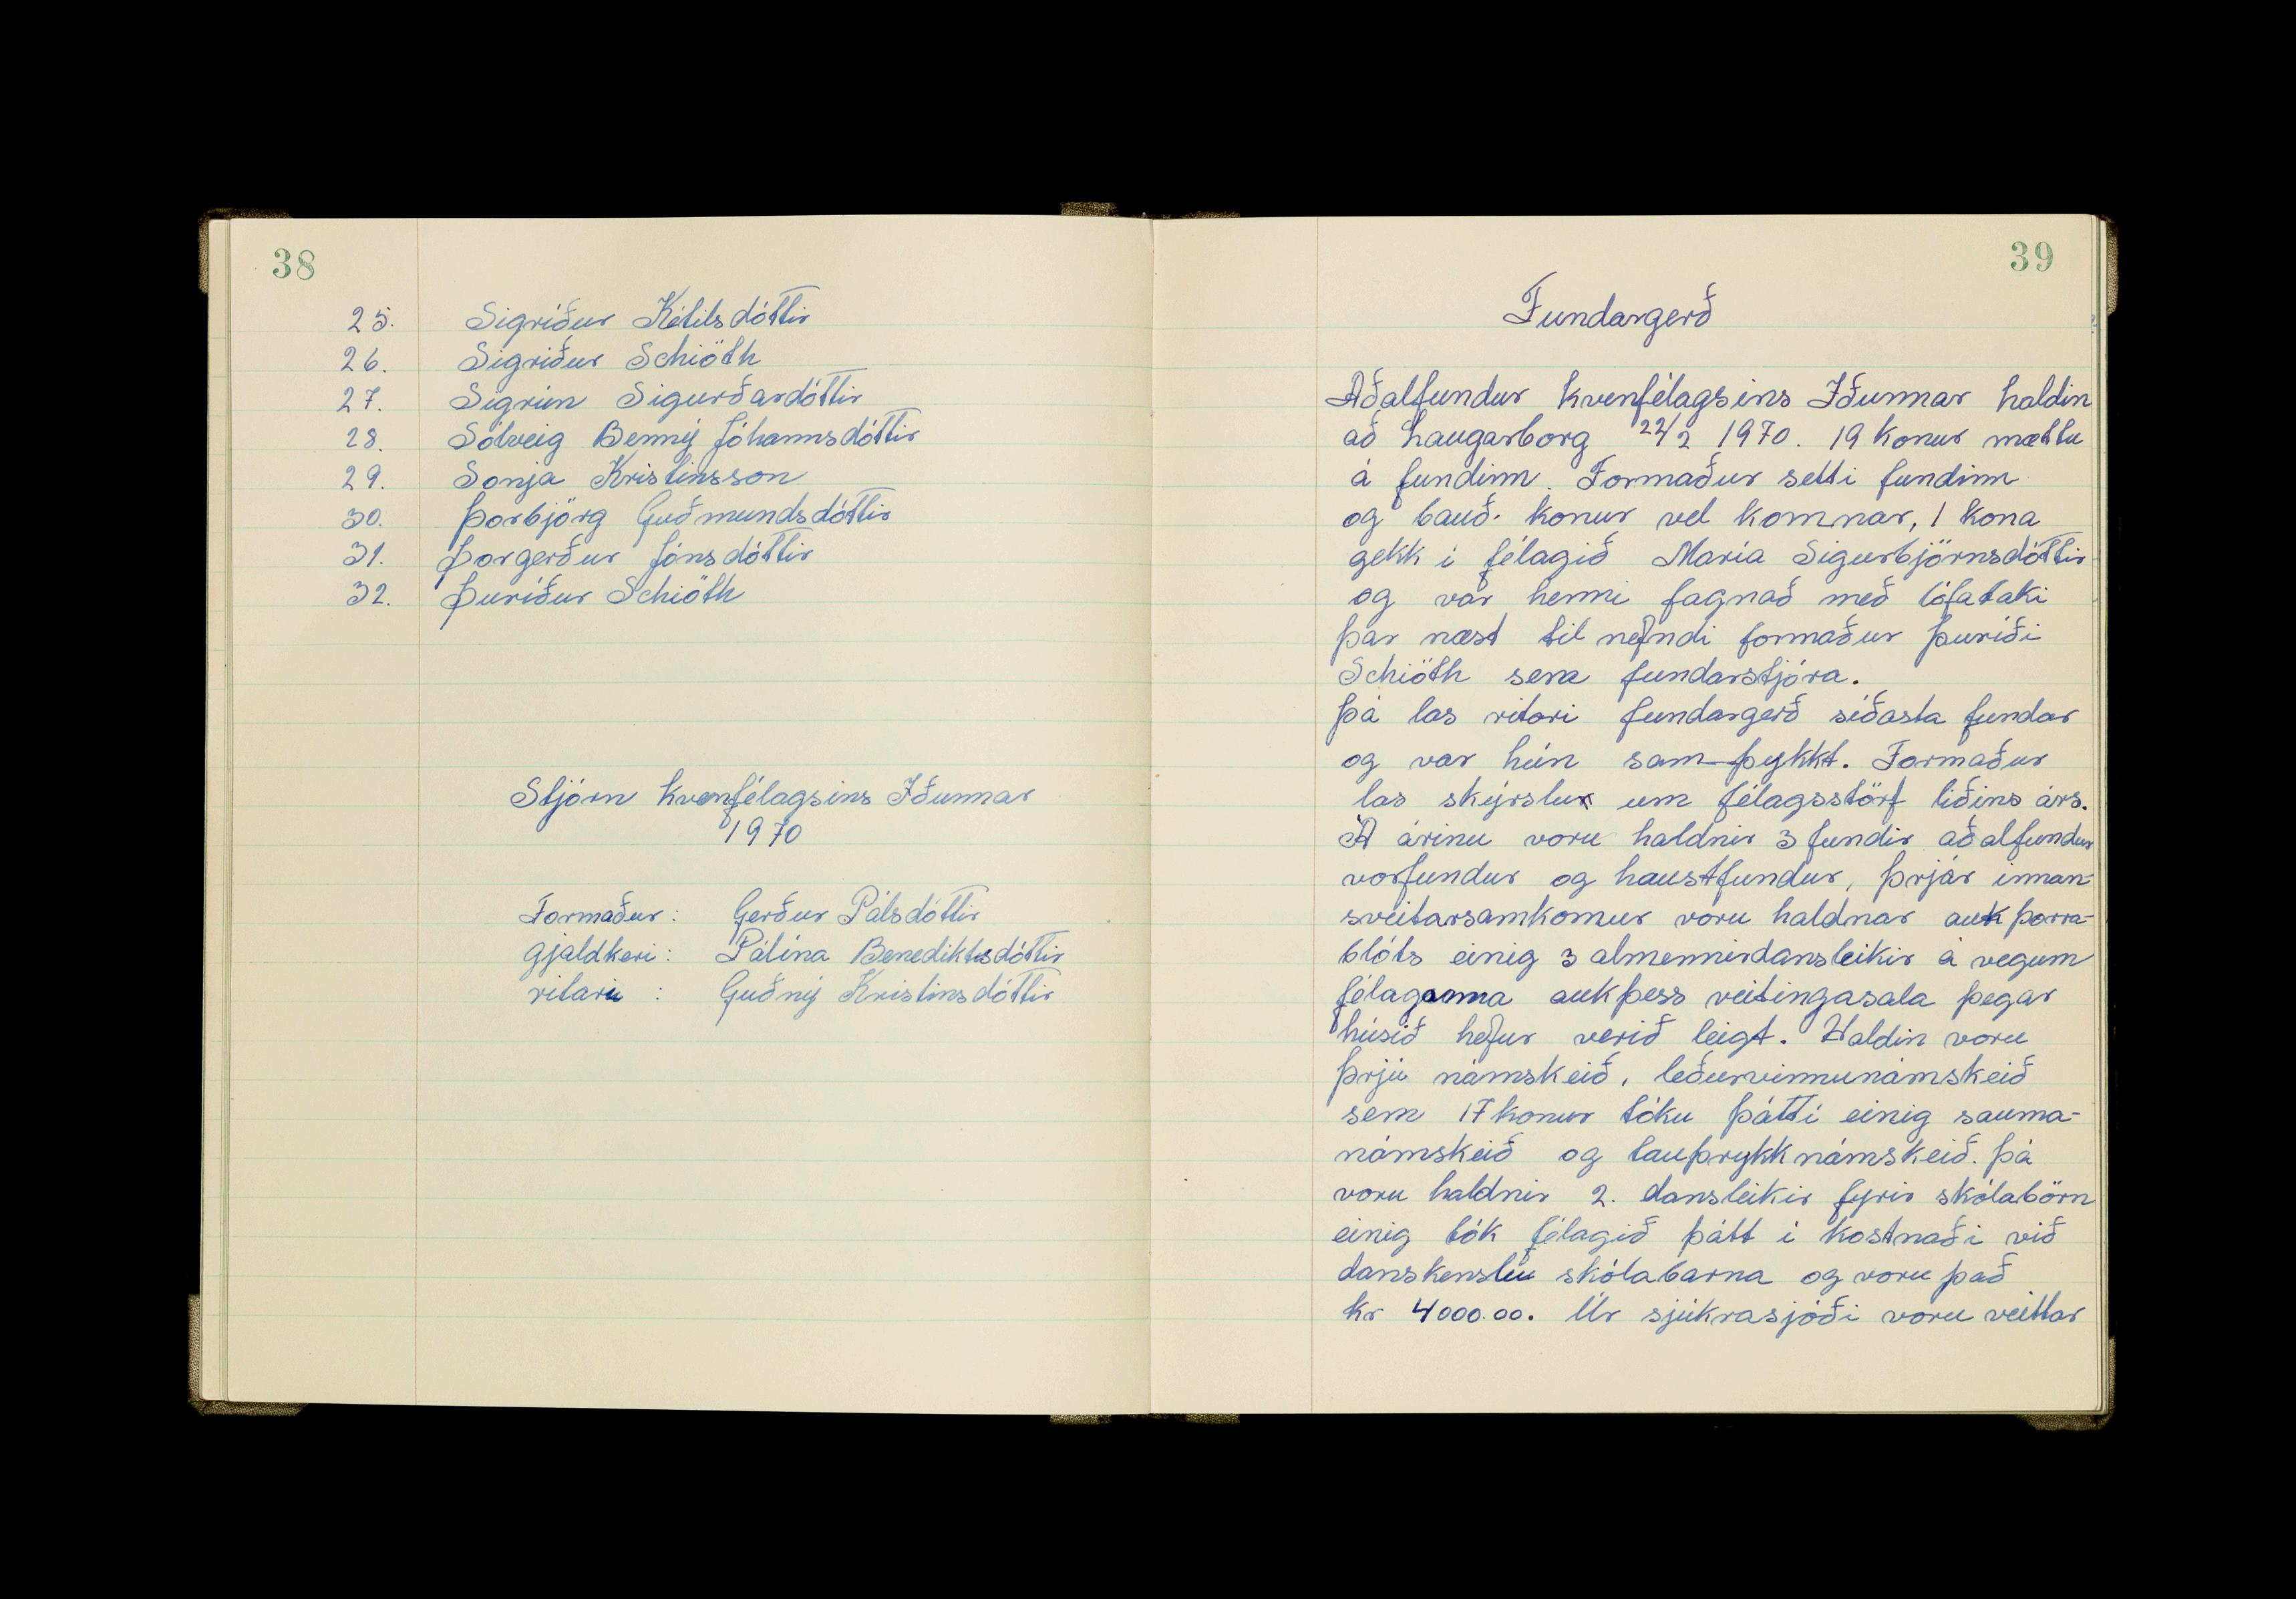 38
25. Sigríður Ketilsdóttir
26. Sigríður Schiöth
27. Sigrún Sigurðardóttir
28. Sólveig Benný Jóhannsdóttir
29. Sonja Kristinsson
30. Þorbjörg Guðmundsdóttir
31. Þorgerður Jónsdóttir
32. Þuríður Schiöth
Stjórn kvenfélagsins Iðunnar
1970
Formaður: Gerður Pálsdóttir
gjaldkeri: Pálína Benediktsdóttir
ritari : Guðný Kristinsdóttir
39
Fundargerð
Aðalfundur kvenfélagsins Iðunnar haldin
að Laugarborg 22/2 1970. 19 konur mættu
á fundinn. Formaður setti fundinn
og bauð konur vel komnar, 1 kona
gekk í félagið María Sigurbjörnsdóttir
og var henni fagnað með lófataki
þar næst til nefndi formaður Þuríði
Schiöth sem fundarstjóra.
Þá las ritari fundargerð síðasta fundar
og var hún sam-þykkt. Formaður
las skýrslu um félagsstörf liðins árs.
Á árinu voru haldnir 3 fundir aðalfundur
vorfundur og haustfundur, þrjár innan-
sveitarsamkomur voru haldnar auk þorra-
blóts einig 3 almennirdansleikir á vegum
félaganna aukþess veitingasala þegar
húsið hefur verið leigt. Haldin voru
þrjú námskeið, leðurvinnunámskeið
sem 17 konur tóku þátt í einig sauma-
námskeið og tauþrykknámskeið. Þá
voru haldnir 2. dansleikir fyrir skólabörn
einig tók félagið þátt í kostnaði við
danskenslu skólabarna og voru það
kr 4000.00. Úr sjúkrasjóði voru veittar